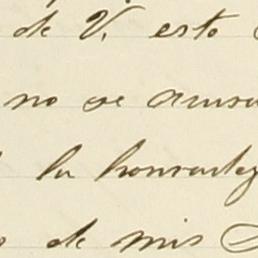 de V. esto
no se acusa
la honradez
de mis